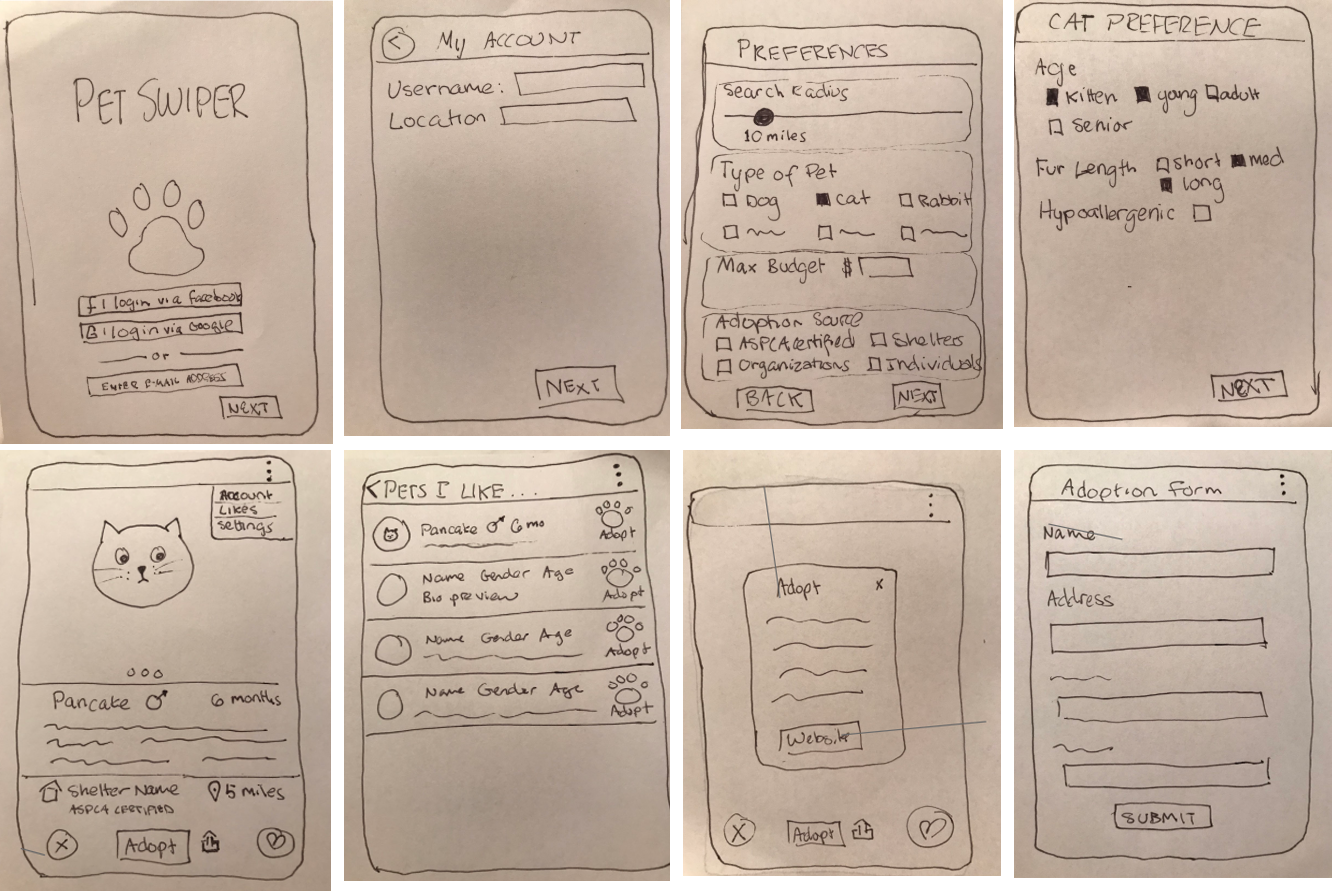 PET SWIPER
f | login via facebook
G | login via Google
or
ENTER E-MAIL ADDRESS
NEXT
< MY ACCOUNT
Username:
Location
NEXT
PREFERENCES
Search Radius
10 miles
Type of Pet
Dog Cat Rabbit
Max Budget $
Adoption Source
ASPCA certified Shelters
Organizations Individuals
BACK NEXT
CAT PREFERENCE
Age
Kitten young adult
Senior
Fur Length short med
long
Hypoallergenic
NEXT
Account
Likes
Settings
Pancake ♂ 6 months
Shelter Name 5 miles
ASPCA CERTIFIED
X Adopt
< PETS I LIKE...
Pancake ♂ 6 mo
Adopt
Name Gender Age
Bio preview
Adopt
Name Gender Age
Adopt
Name Gender Age
Adopt
Adopt x
Website
X Adopt
Adoption Form
Name
Address
SUBMIT